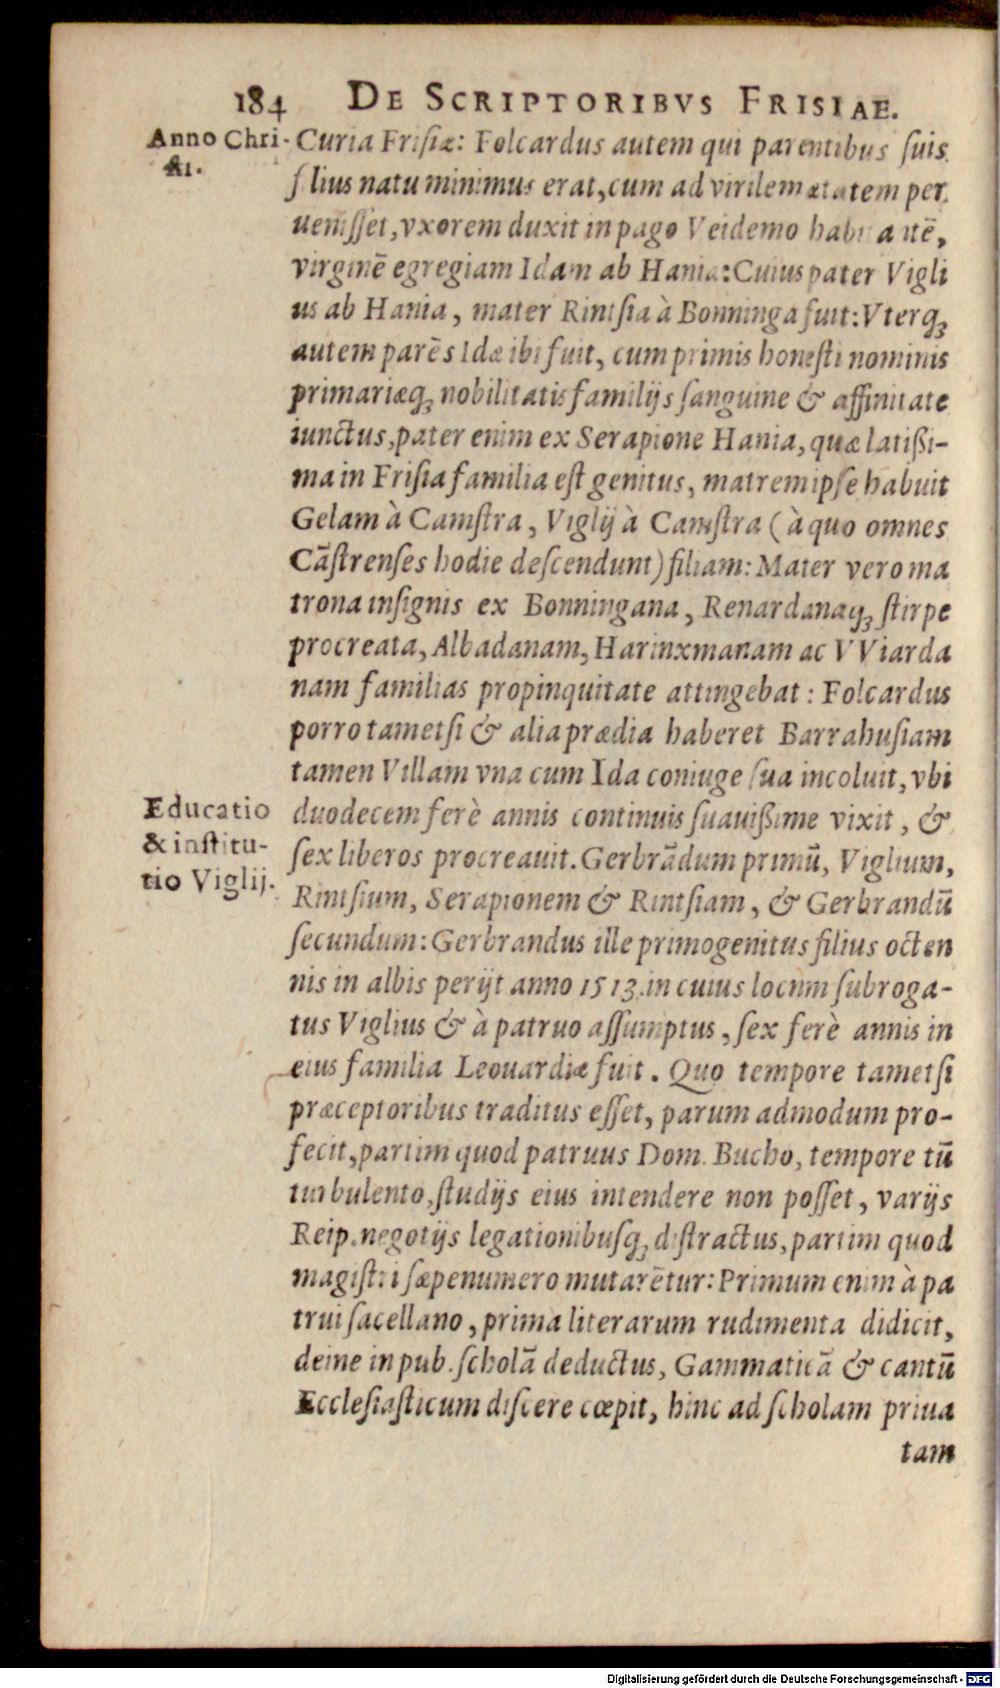 184 DE SCRIPTORIBVS FRISIAE.
Anno Chri-
sti.
Curia Frisiæ: Folcardus autem qui parentibus suis
filius natu minimus erat, cum ad virilem ætatem per
uenisset, vxorem duxit in pago Veidemo habitantē,
virginē egregiam Idam ab Hania: Cuius pater Vigli
us ab Hania, mater Rintsia à Bonninga fuit: Vterq;
autem parēs Idæ ibi fuit, cum primis honesti nominis
primariæq; nobilitatis familijs sanguine & affinitate
iunctus, pater enim ex Serapione Hania, quæ latißi-
ma in Frisia familia est genitus, matrem ipse habuit
Gelam à Camstra, Viglij à Camstra (à quo omnes
Cāstrenses hodie descendunt) filiam: Mater vero ma
trona insignis ex Bonningana, Renardanaq; stirpe
procreata, Albadanam, Harinxmanam ac VViarda
nam familias propinquitate attingebat: Folcardus
porro tametsi & alia prædia haberet Barrahusiam
tamen Villam vna cum Ida coniuge sua incoluit, vbi
Educatio
& institu-
tio Viglij.
duodecem ferè annis continuis suauißime vixit, &
sex liberos procreauit. Gerbrādum primū, Viglium,
Rintsium, Serapionem & Rintsiam, & Gerbrandū
secundum: Gerbrandus ille primogenitus filius octen
nis in albis perijt anno 1513. in cuius locum subroga-
tus Viglius & à patruo assumptus, sex ferè annis in
eius familia Leouardiæ fuit. Quo tempore tametsi
præceptoribus traditus esset, parum admodum pro-
fecit, partim quod patruus Dom. Bucho, tempore tū
turbulento, studijs eius intendere non posset, varijs
Reip. negotijs legationibusq; distractus, partim quod
magistri sæpenumero mutarētur: Primum enim à pa
trui sacellano, prima literarum rudimenta didicit,
deine in pub. scholā deductus, Gammaticā & cantū
Ecclesiasticum discere cœpit, hinc ad scholam priua
tam
Digitalisierung gefördert durch die Deutsche Forschungsgemeinschaft - DFG